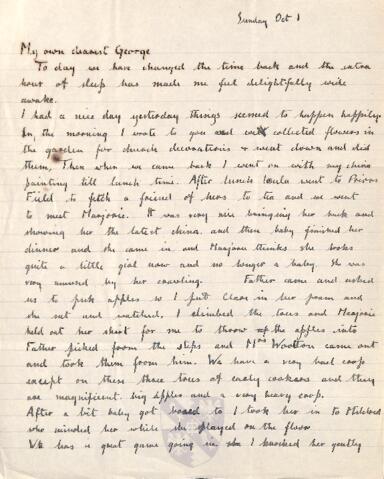 Sunday Oct 1
My own dearest George
To day we have changed the time back and the extra
hour of sleep has made me feel delightfully wide
awake.
I had a nice day yesterday things seemed to happen happily.
In the morning I wrote to you and collected flowers in
the garden for church decorations & went down and did
them, Then when we came back I went on with my china
painting till lunch time. After lunch Lula went to Priors
Field to fetch a friend of hers to tea and we went
to meet Marjorie. It was very nice bringing her back and
showing her the latest china. and then baby finished her
dinner and she came in and Marjorie thinks she looks
quite a little girl now and no longer a baby. She was
very amused by her crawling. Father came and asked
us to pick apples so I put Clare in her pram and
she sat and watched, I climbed the trees and Marjorie
held out her skirt for me to throw the apples into
Father picked from the steps and Mrs Wootton came out
and took them from him. We have a very bad crop
except on these three trees of early cookers and they
are magnificent. big apples and a very heavy crop.
After a bit baby got bored so I took her in to Mildred
who minded her while she played on the floor
We had a great game going in I knocked her gently